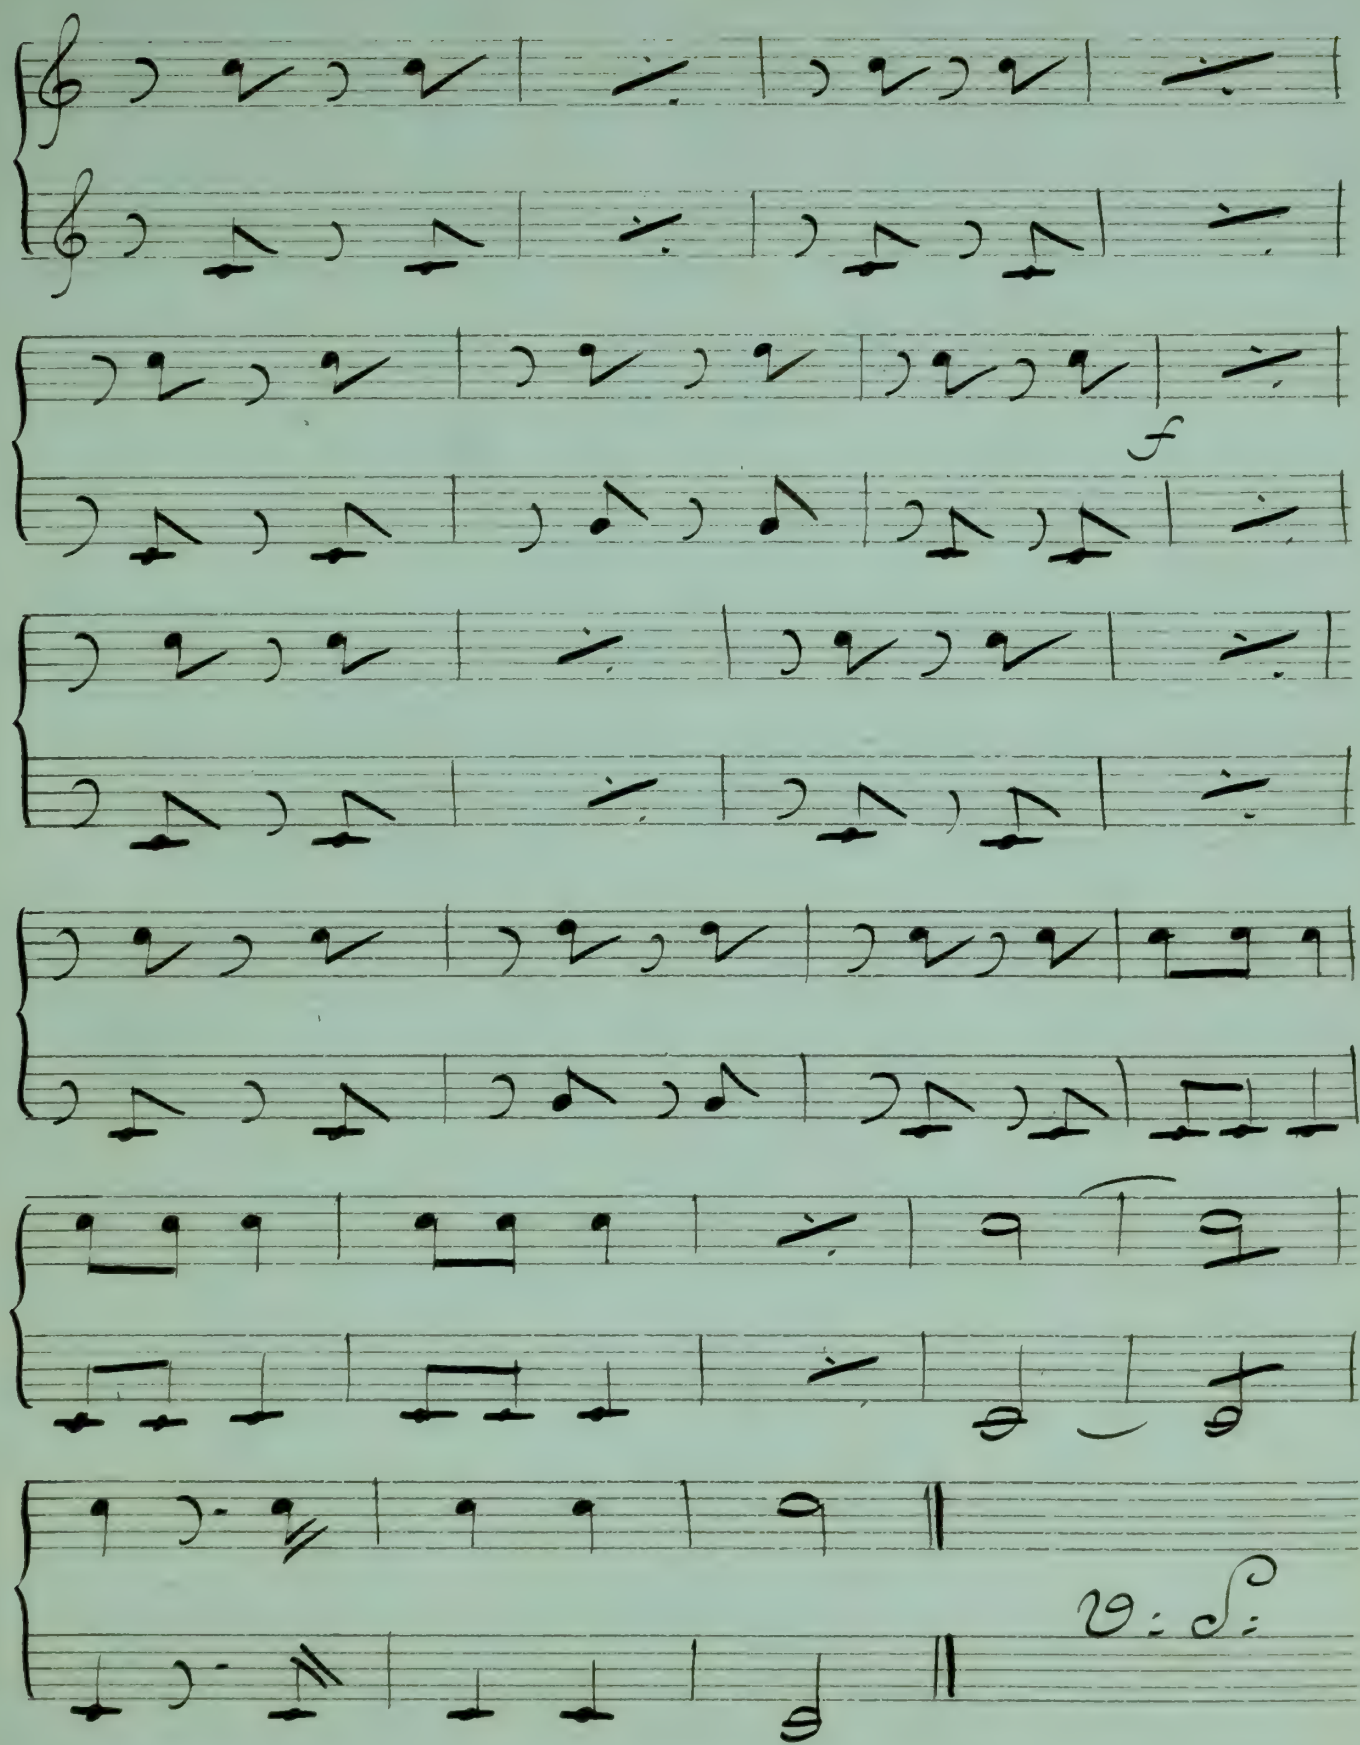 f
V: S: